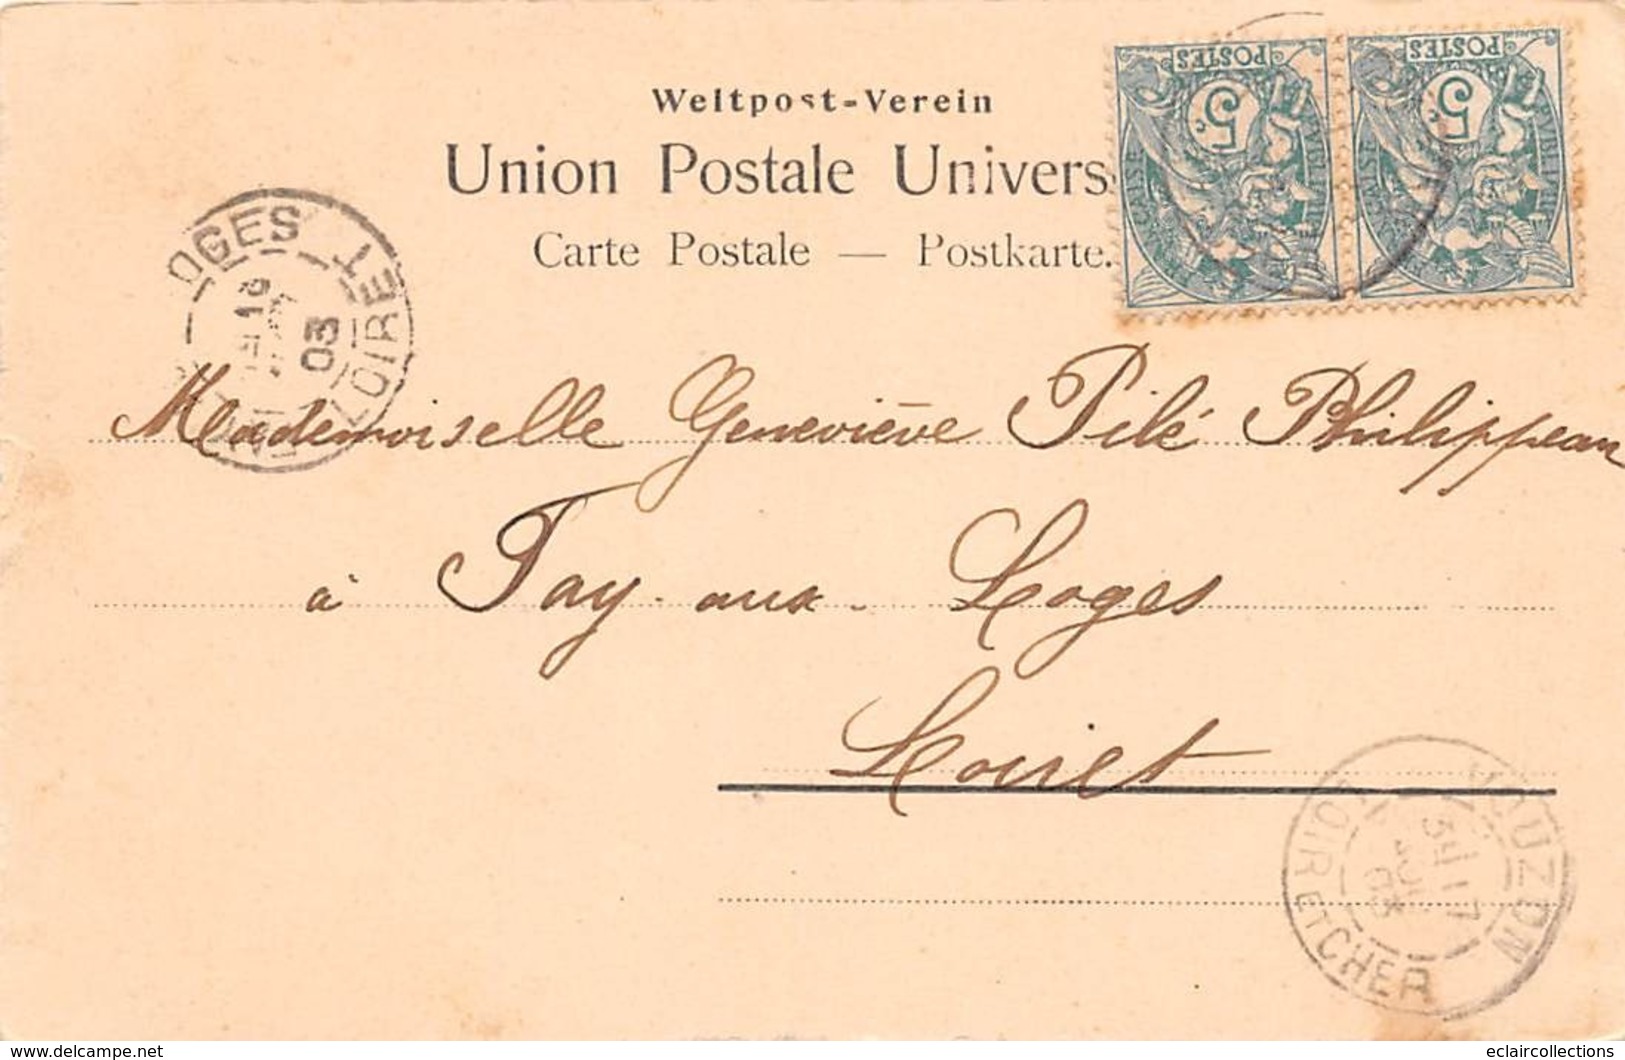 Weltpost-Verein
Union Postale Univers
Carte Postale — Postkarte.
POSTES
5c
POSTES
5c
OGES
ET LOIRE
03
Mademoiselle Geneviève Pilé Philippeau
à Fay-aux-Loges
Loiret
MOUZON
LOIR ET CHER
17
03
eclaircollections